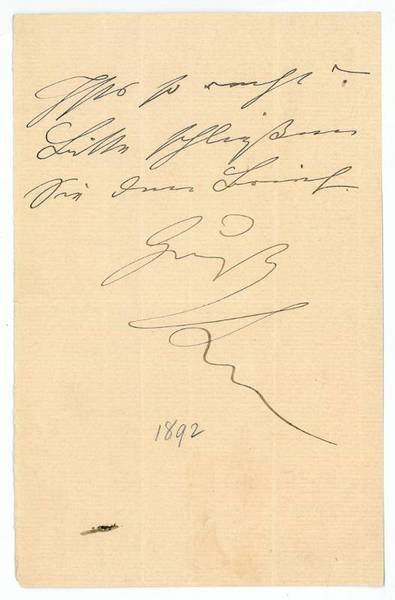 Ist's so recht?
Bitte schließen
Sie den Brief.
Gruß
1892